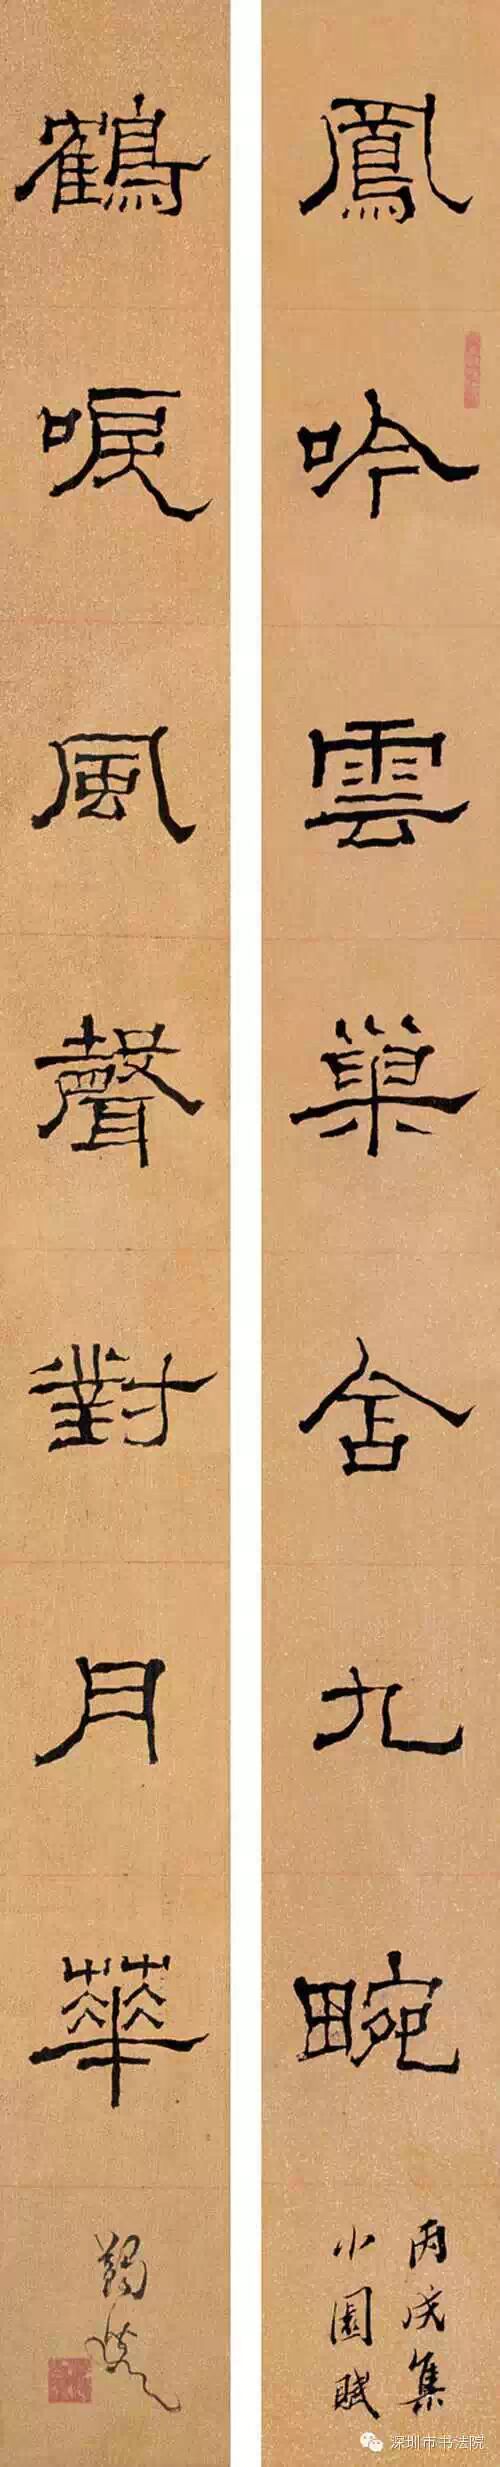 鳳吟雲巢舍九畹
丙戌集
小園賦
鶴唳風聲對月華
深圳市书法院